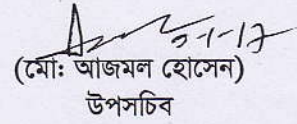 ৩-১-১৭
(মোঃ আজমল হোসেন)
উপসচিব